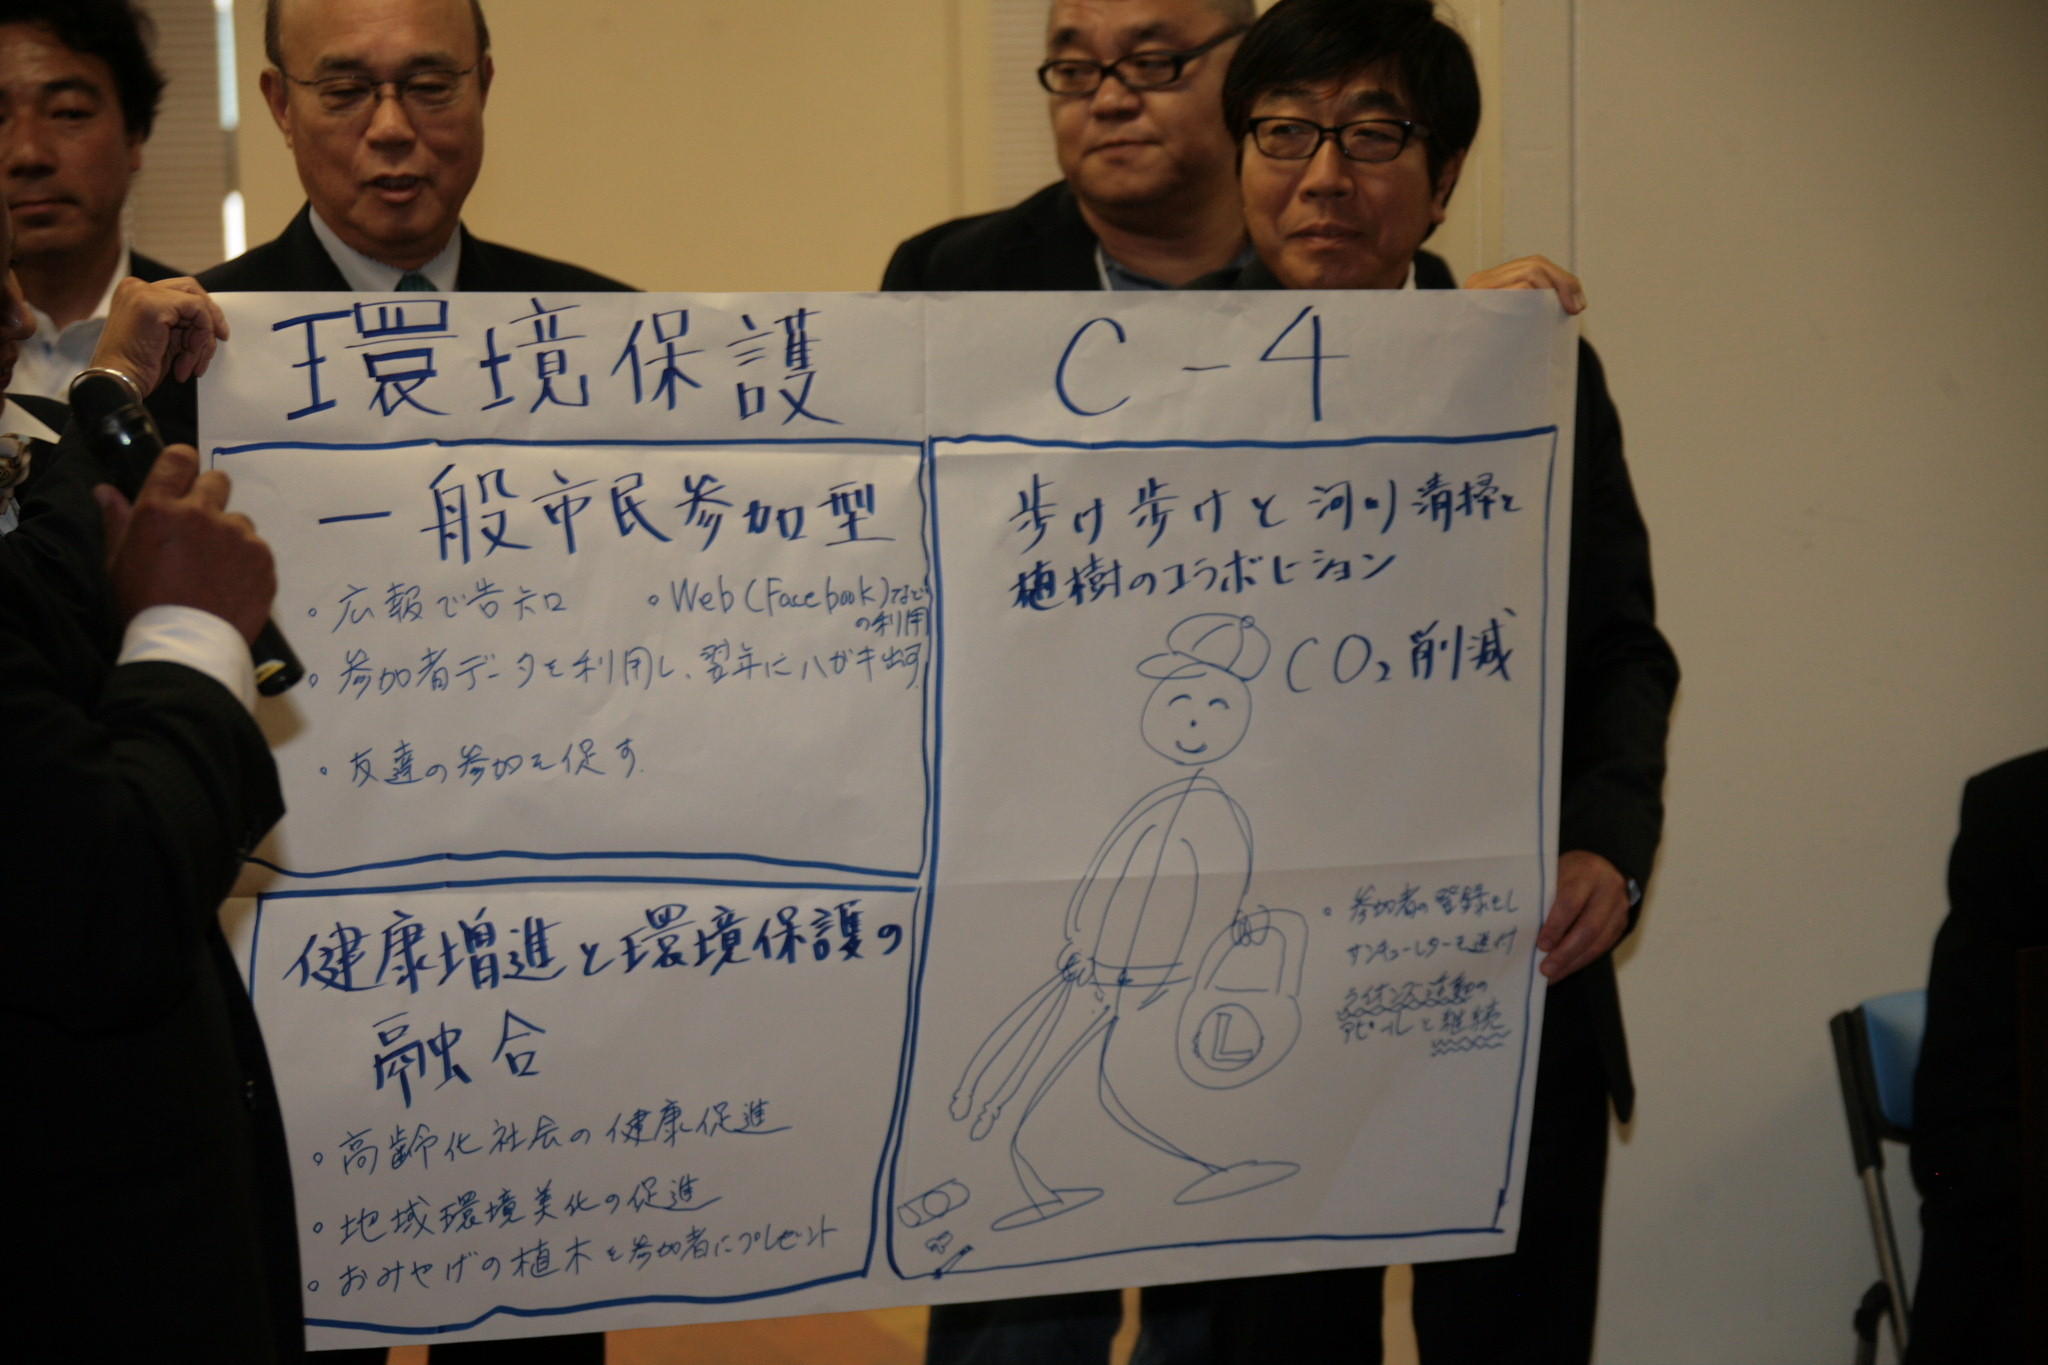 環境保護
C-4
一般市民参加型
・広報で告知
・Web(Facebook)など
の利用
・参加者データを利用し、翌年にハガキ出す
・友達の参加を促す
健康増進と環境保護の
融合
・高齢化社会の健康促進
・地域環境美化の促進
・おみやげの植木を参加者にプレゼント
歩け歩けと河川清掃と
植樹のコラボレーション
CO₂削減
L
・参加者の登録をし
サンキューレターを送付
ライオンズ活動の
アピールと継続